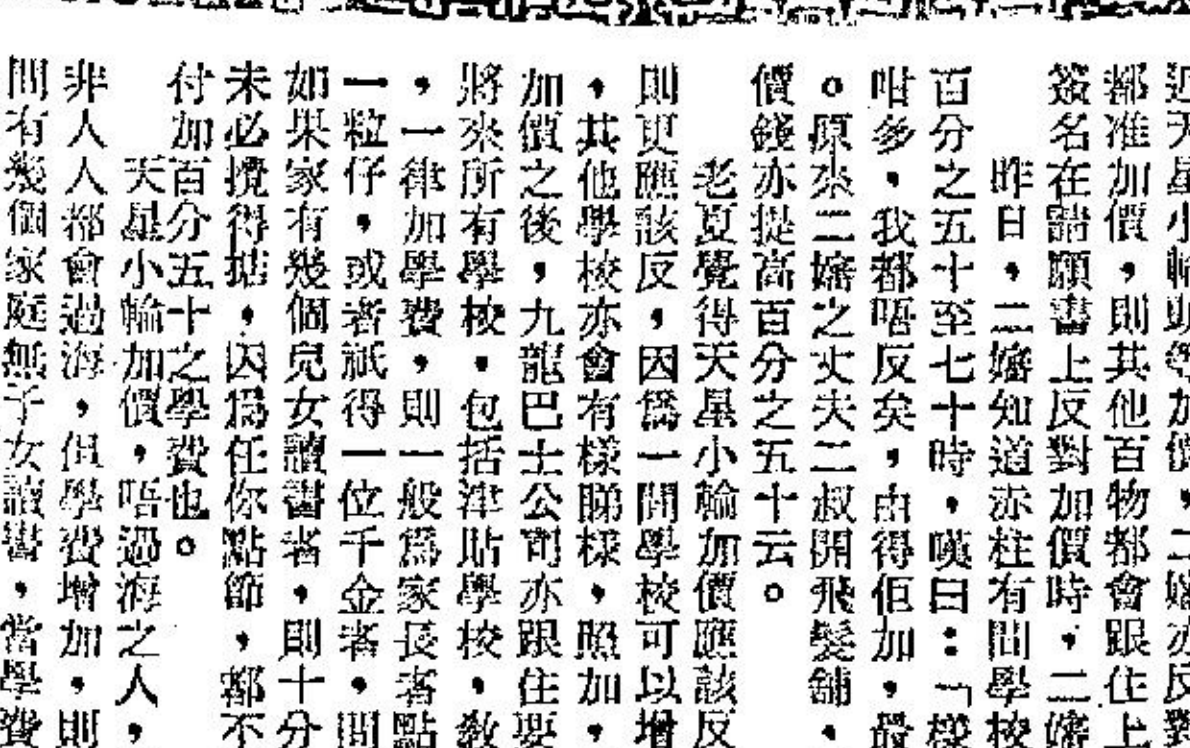 近天星小輪頭等加價,二嬸亦反對
都准加價,則其他百物都會跟住上
簽名在請願書上反對加價時,二嬸
昨日,二嬸知道赤柱有間學校
百分之五十至七十時,嘆曰:「樣
咁多,我都唔反矣,由得佢加,最
。原來二嬸之丈夫二叔開飛髮舖,
價錢亦提高百分之五十云。
老夏覺得天星小輪加價應該反
則更應該反,因爲一間學校可以增
,其他學校亦會有樣睇樣,照加,
加價之後,九龍巴士公司亦跟住要
將來所有學校,包括津貼學校,敎
,一律加學費,則一般爲家長者點
一粒仔,或者祇得一位千金者,問
如果家有幾個兒女讀書者,則十分
未必攪得掂,因爲任你點節,都不
付加百分五十之學費也。
天星小輪加價,唔過海之人,
非人人都會過海,但學費增加,則
間有幾個家庭無子女讀書,當學費